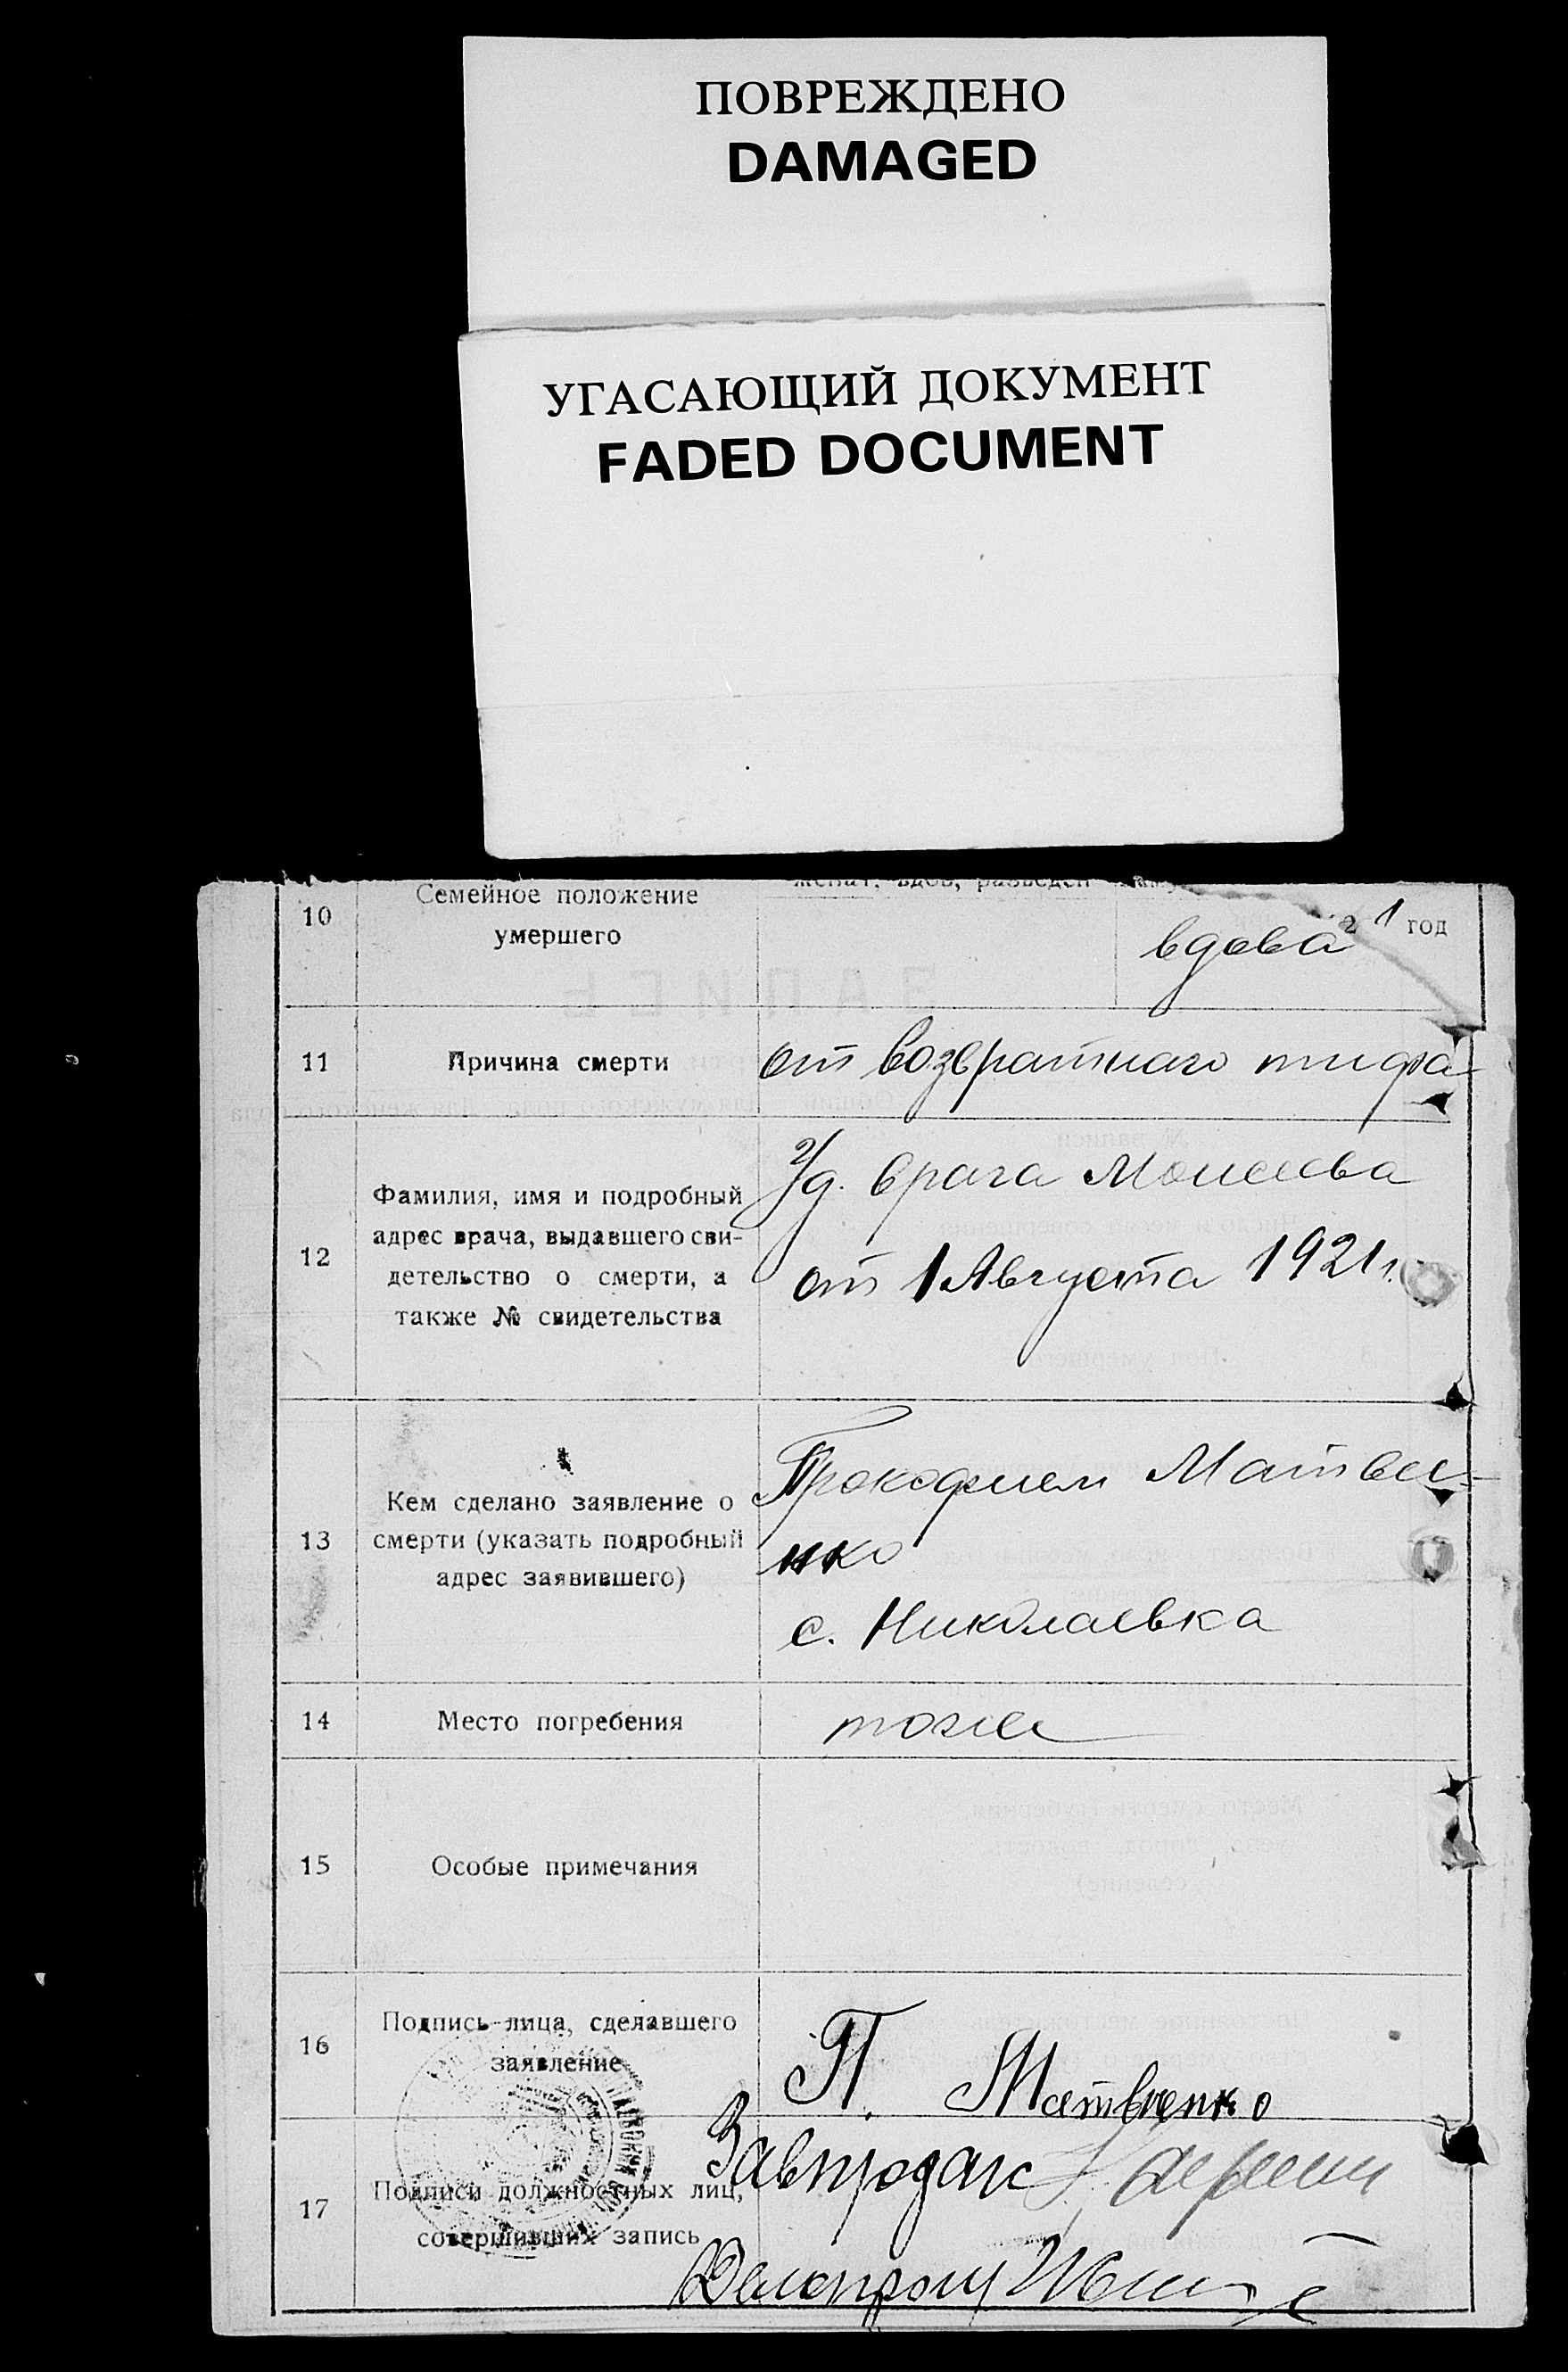 ПОВРЕЖДЕНО
DAMAGED
УГАСАЮЩИЙ ДОКУМЕНТ
FADED DOCUMENT
женат, вдов, разведен
10
Семейное положение
умершего
вдова
2 1 год
11
Причина смерти
от возвратнаго тифа
12
Фамилия, имя и подробный
адрес врача, выдавшего сви-
детельство о смерти, а
также № свидетельства
врача Моисеева
от 1 Августа 1921 г.
13
Кем сделано заявление о
смерти (указать подробный
адрес заявившего)
Прокофием Матвее-
нко
с. Николаевка
14
Место погребения
тоже
15
Особые примечания
16
Подпись лица, сделавшего
заявление
П. Матвиенко
17
Подписи должностных лиц,
совершивших запись
Завподзагс
Делопроиз